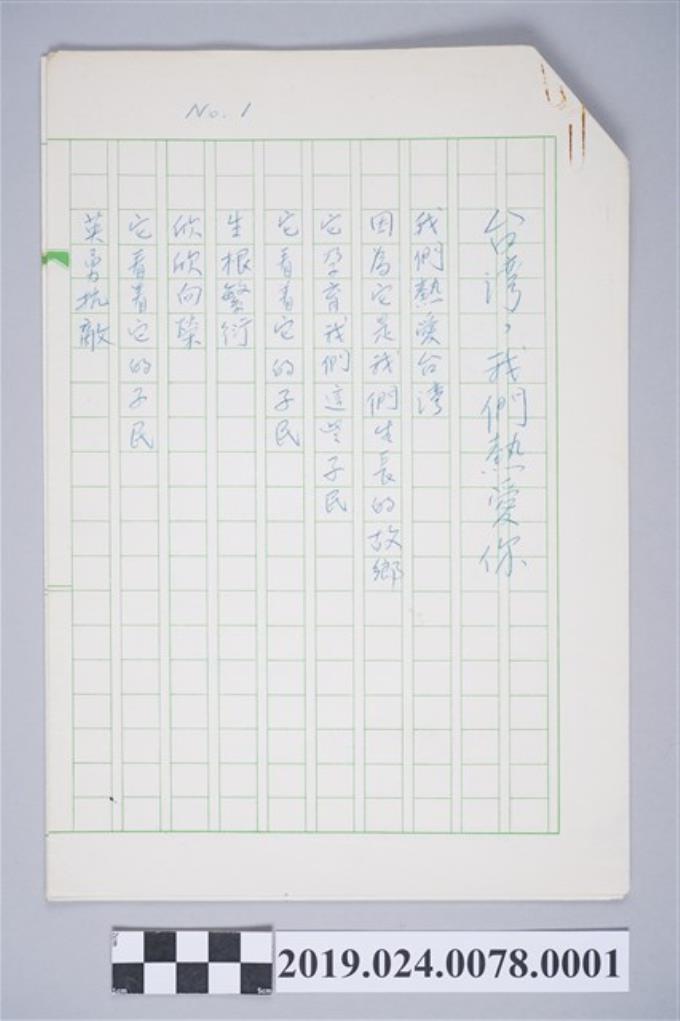 No. 1
台湾，我們熱愛你
我們熱愛台湾
因為它是我們生長的故鄉
它孕育我們這些子民
它看着它的子民
生根繁衍
欣欣向荣
它看着它的子民
英勇抗敵
2019.024.0078.0001
1cm
5cm